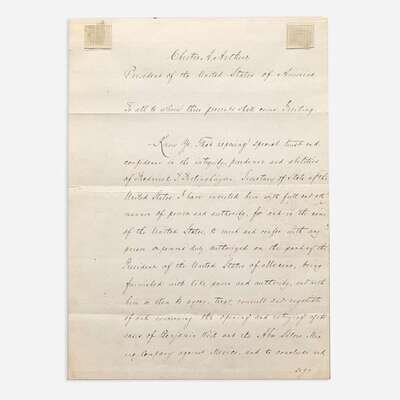 Chester A. Arthur
President of the United States of America
To all to whom these presents shall come, Greeting.
Know Ye, That reposing special trust and
confidence in the integrity, prudence and abilities
of Frederick T. Frelinghuysen, Secretary of State of the
United States, I have invested him with full and all
manner of power and authority, for and in the name
of the United States, to meet and confer with any
person or persons duly authorized on the part of the
President of the United States of Mexico, being
furnished with like power and authority, and with
him or them to agree, treat, consult and negotiate
of and concerning the opening and retrying of the
cases of Benjamin Weil and the Abra Silver Min-
ing Company against Mexico, and to conclude and